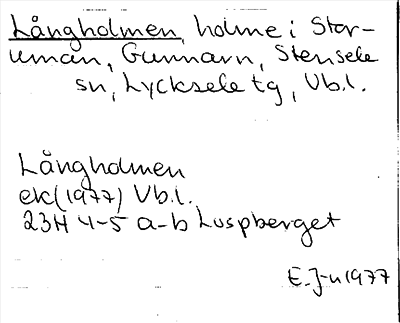 Långholmen, holme i Stor-
uman, Gunnarn, Stensele
sn, Lycksele tg, Vb.l.
Långholmen
ek(1977) Vb.l.
23H 4-5 a-b Luspberget
E.J-n 1977